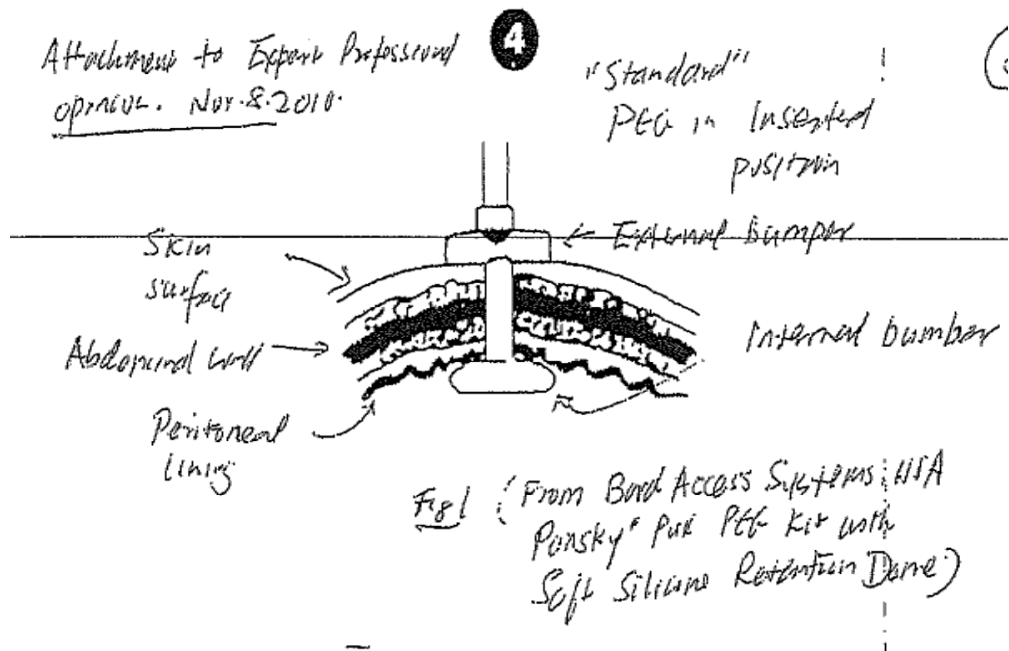 Attachment to Expert Professional
opinion. Nov. 8. 2010.
4
"Standard"
PEG in Inserted
position
External bumper
Skin
surface
Abdominal wall
Internal bumber
Peritoneal
lining
Fig 1 (From Bard Access Systems; USA
Ponsky® Pull PEG Kit with
Soft Silicone Retention Dome)